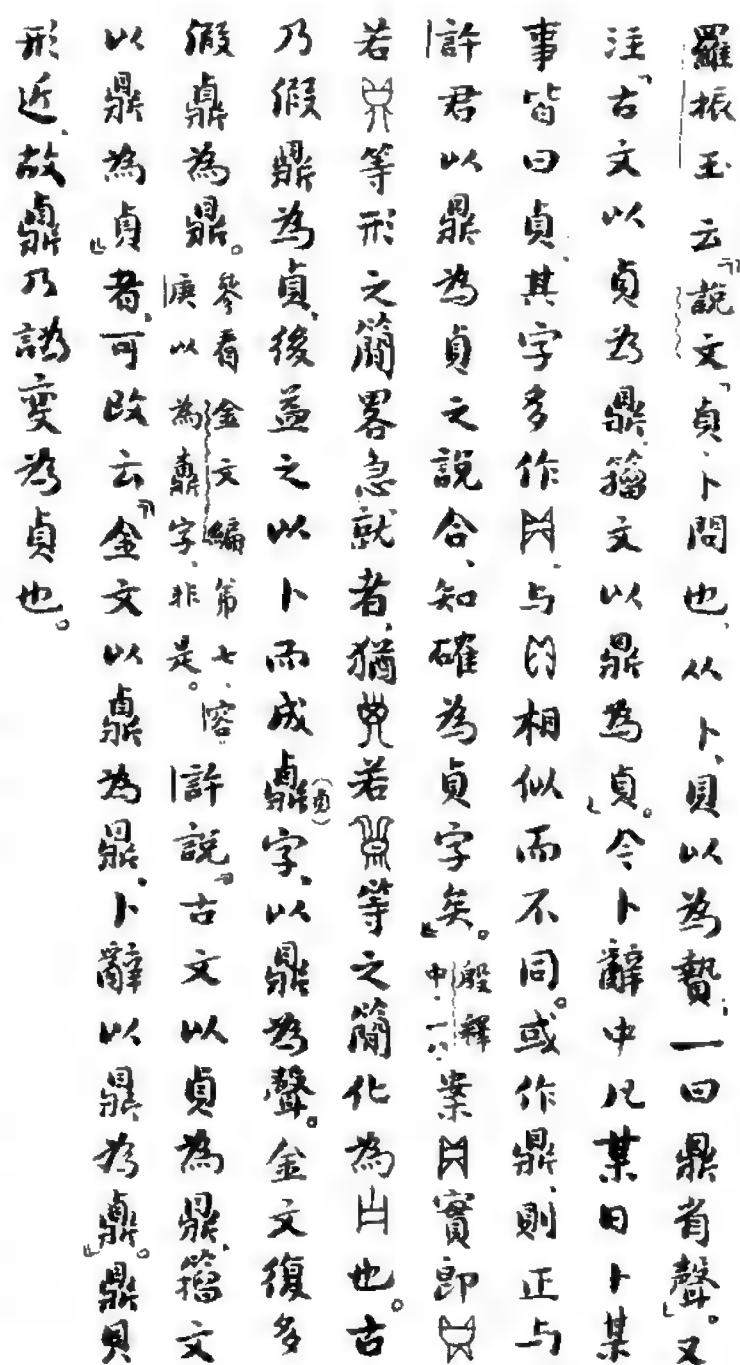 羅振玉云『說文「貞、卜問也、从卜、貝以為贄；一曰鼎省聲」。又
注「古文以貞為鼎、籀文以鼎為貞」。今卜辭中凡某日卜某
事皆曰貞、其字多作、与相似而不同。或作鼎、則正与
許君以鼎為貞之說合、知確為貞字矣』。殷釋中·一八案實即
若等形之簡畧急就者、猶若等之簡化為也。古
乃假鼎為貞、後益之以卜而成鼑(貞)字、以鼎為聲。金文復多
假鼑為鼎。參看金文編第七、容庚以為鼑字、非是。許說「古文以貞為鼎、籀文
以鼎為貞」者、可改云『金文以鼑為鼎、卜辭以鼎為鼑』。鼎貝
形近、故鼑乃譌變為貞也。